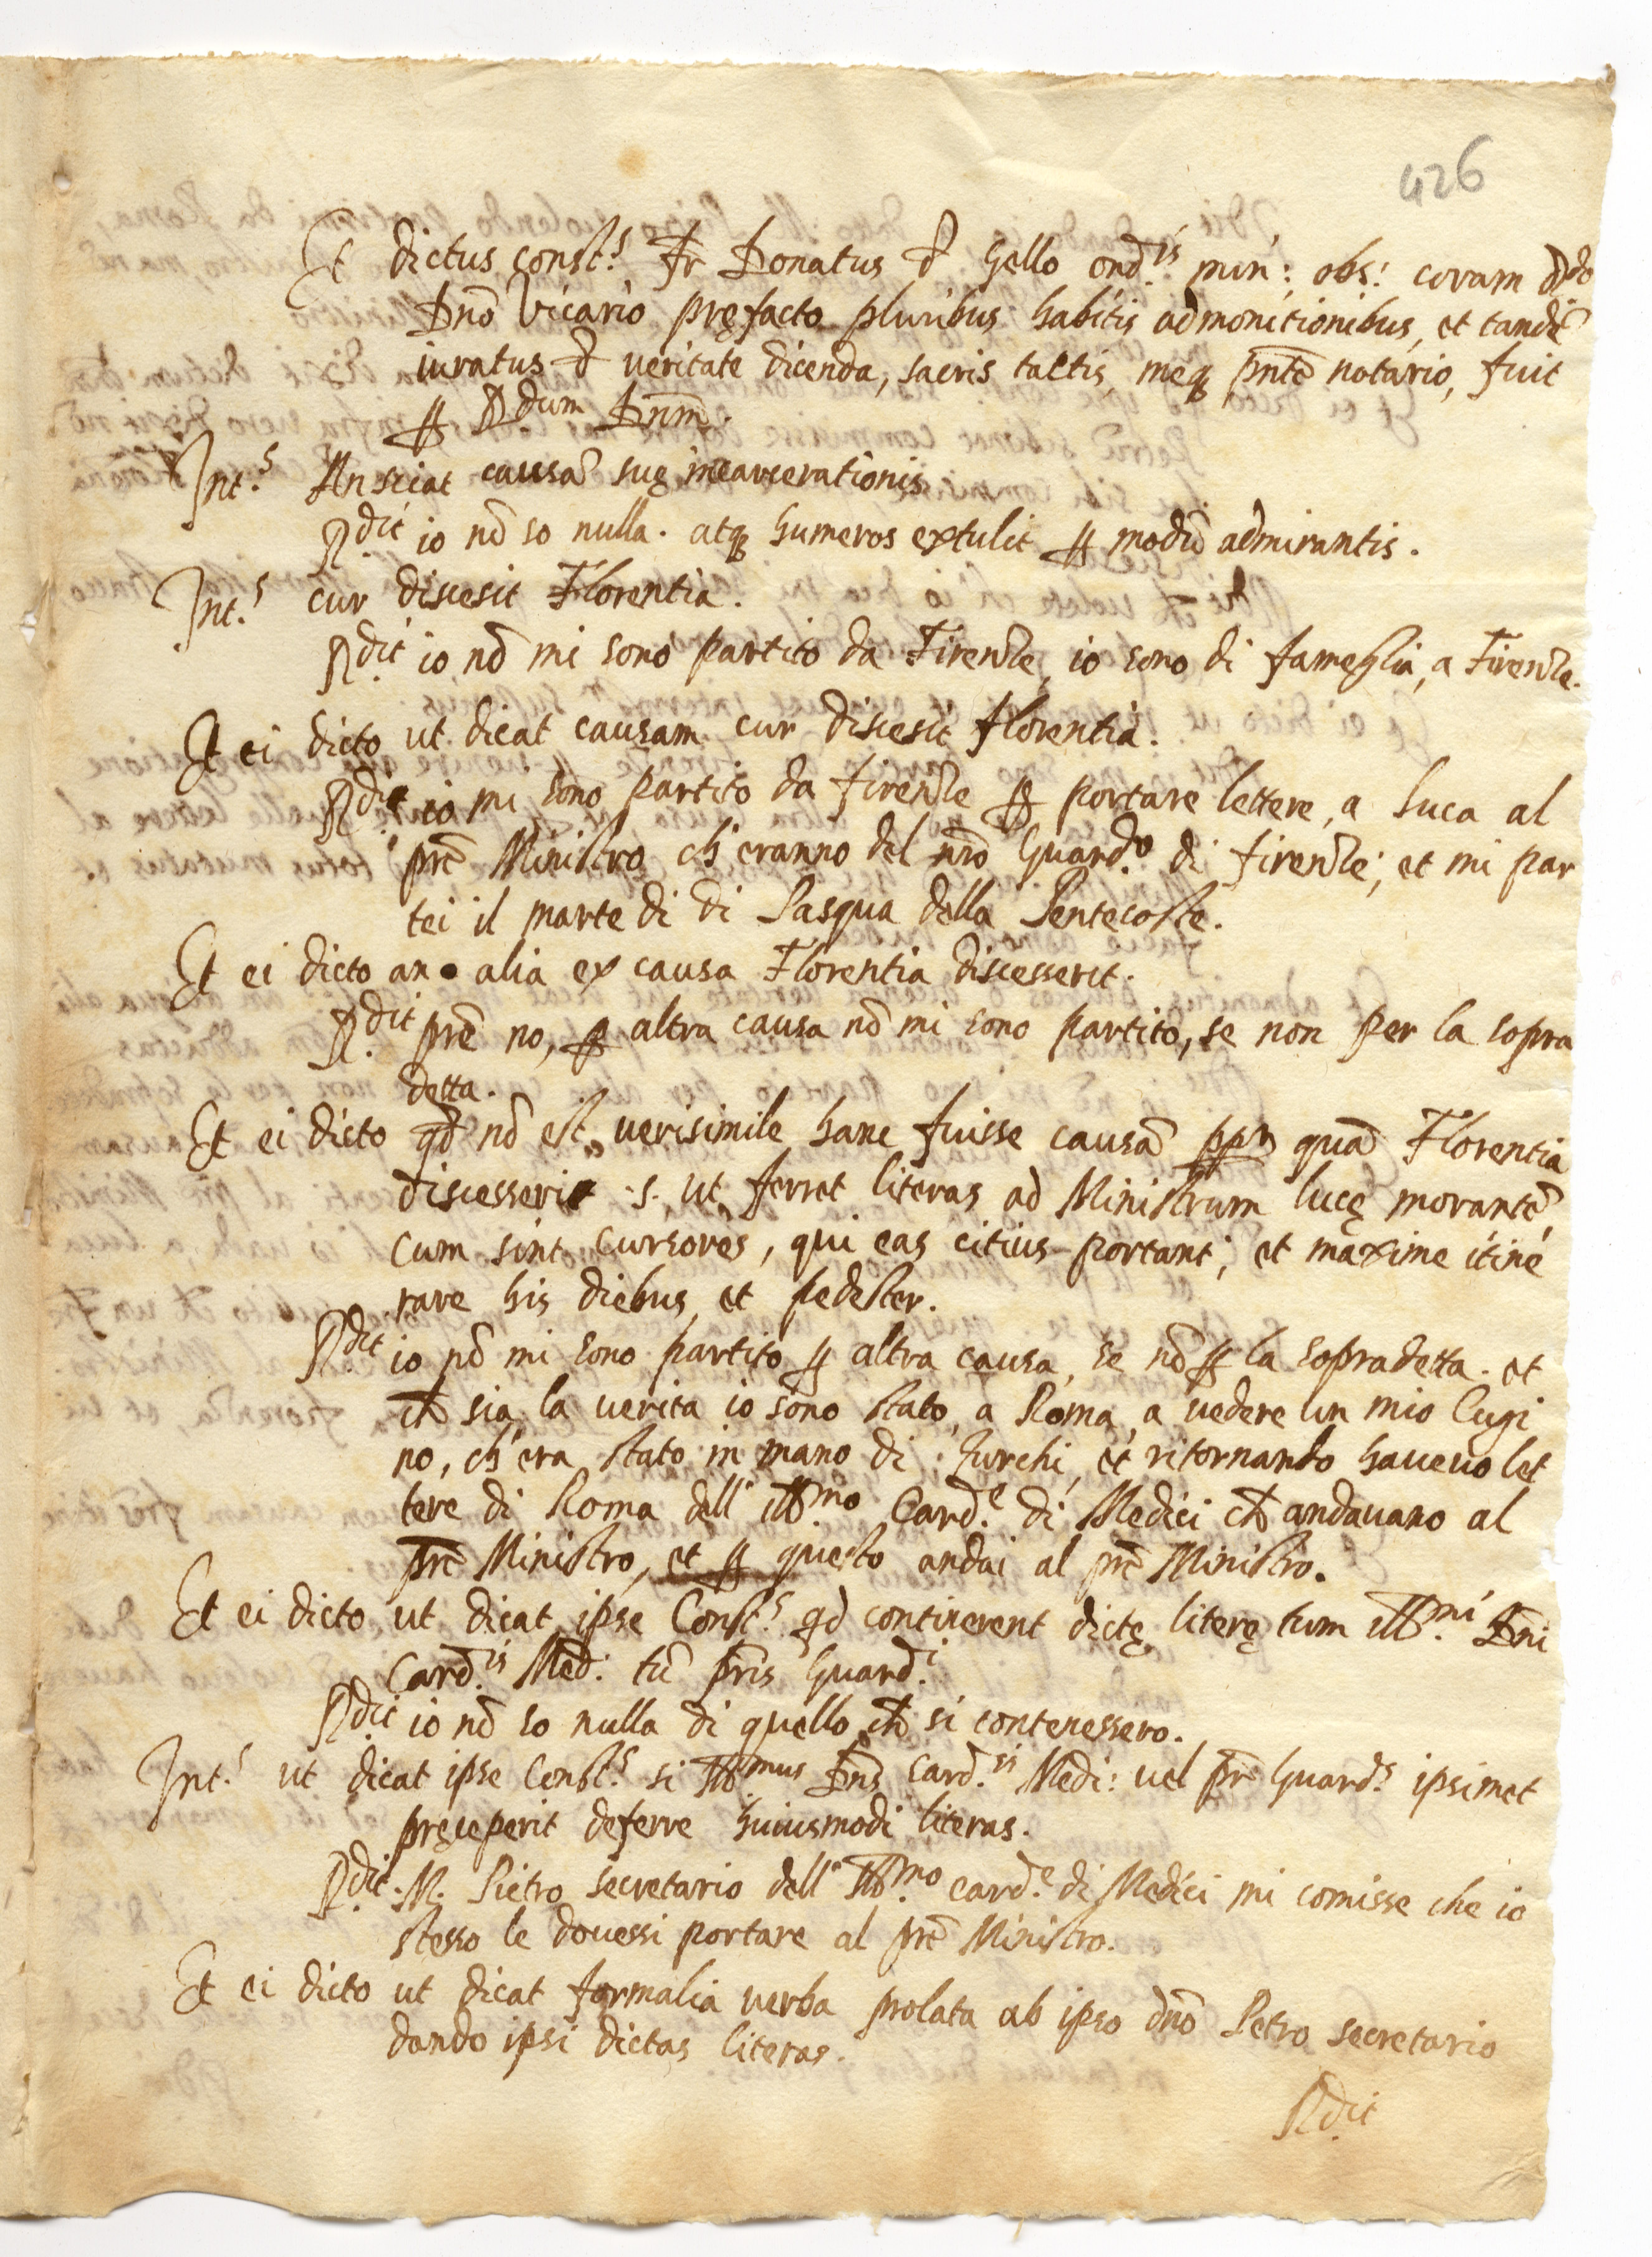 426
Et dictus const.s Fr Donatus d Gello ord.is min: obs: coram Rdo
Dno Vicario pręfacto pluribus habitis admonitionibus, et tandē
iuratus d veritate dicenda, sacris tactis, meq; pnte notario, fuit
p Rdum Dnm.
Int.s An sciat causā suę incarcerationis
R.dit io nō so nulla. atq; humeros extulit p modū admirantis.
Int.s cur discesit Florentia.
R.dit io nō mi sono partito da Firenze, io sono di fameglia, a Firenze.
Et ei dicto ut dicat causam cur discesit florentia.
R.dit io mi sono partito da firenze p portare lettere, a Luca al
prē Ministro ch'eranno del nrō Guard.o di firenze; et mi par
tei il marte di di Pasqua della Pentecoste.
Et ei dicto an alia ex causa Florentia discesserit.
R.dit prē no, p altra causa nō mi sono partito, se non per la sopra
detta.
Et ei dicto qd nō est verisimile hanc fuisse causā ppr quā Florentia
discesserit .s. ut ferret literas ad Ministrum lucę morantē,
cum sint cursores, qui eas citius portant; et maxime itine
rare his diebus, et pedester.
R.dit io nō mi sono partito p altra causa, se nō p la sopradetta. et
ch sia la verita io sono stato, a Roma, a vedere un mio Cugi
no, ch'era stato in mano di Turchi, et ritornando havevo let
tere di Roma dell' Ill.mo Card.e di Medici ch andavano al
prē Ministro, et p questo andai al prē Ministro.
Et ei dicto ut dicat ipse Const.s qd continerent dictę literę tum Ill.mi Dni
Card.is Med: tū pris Guard.i
R.dit io nō so nulla di quello ch si contenessero.
Int.s ut dicat ipse Const.s si Ill.mus Dns Card.is Medi: vel prē Guard.s ipsimet
pręceperit deferre huiusmodi literas.
R.dit. M. Pietro secretario dell' Ill.mo Card.e di Medici mi comisse che io
stesso le dovessi portare al prē Ministro.
Et ei dicto ut dicat formalia verba prolata ab ipso dno Petro secretario
dando ipsi dictas literas.
R.dit